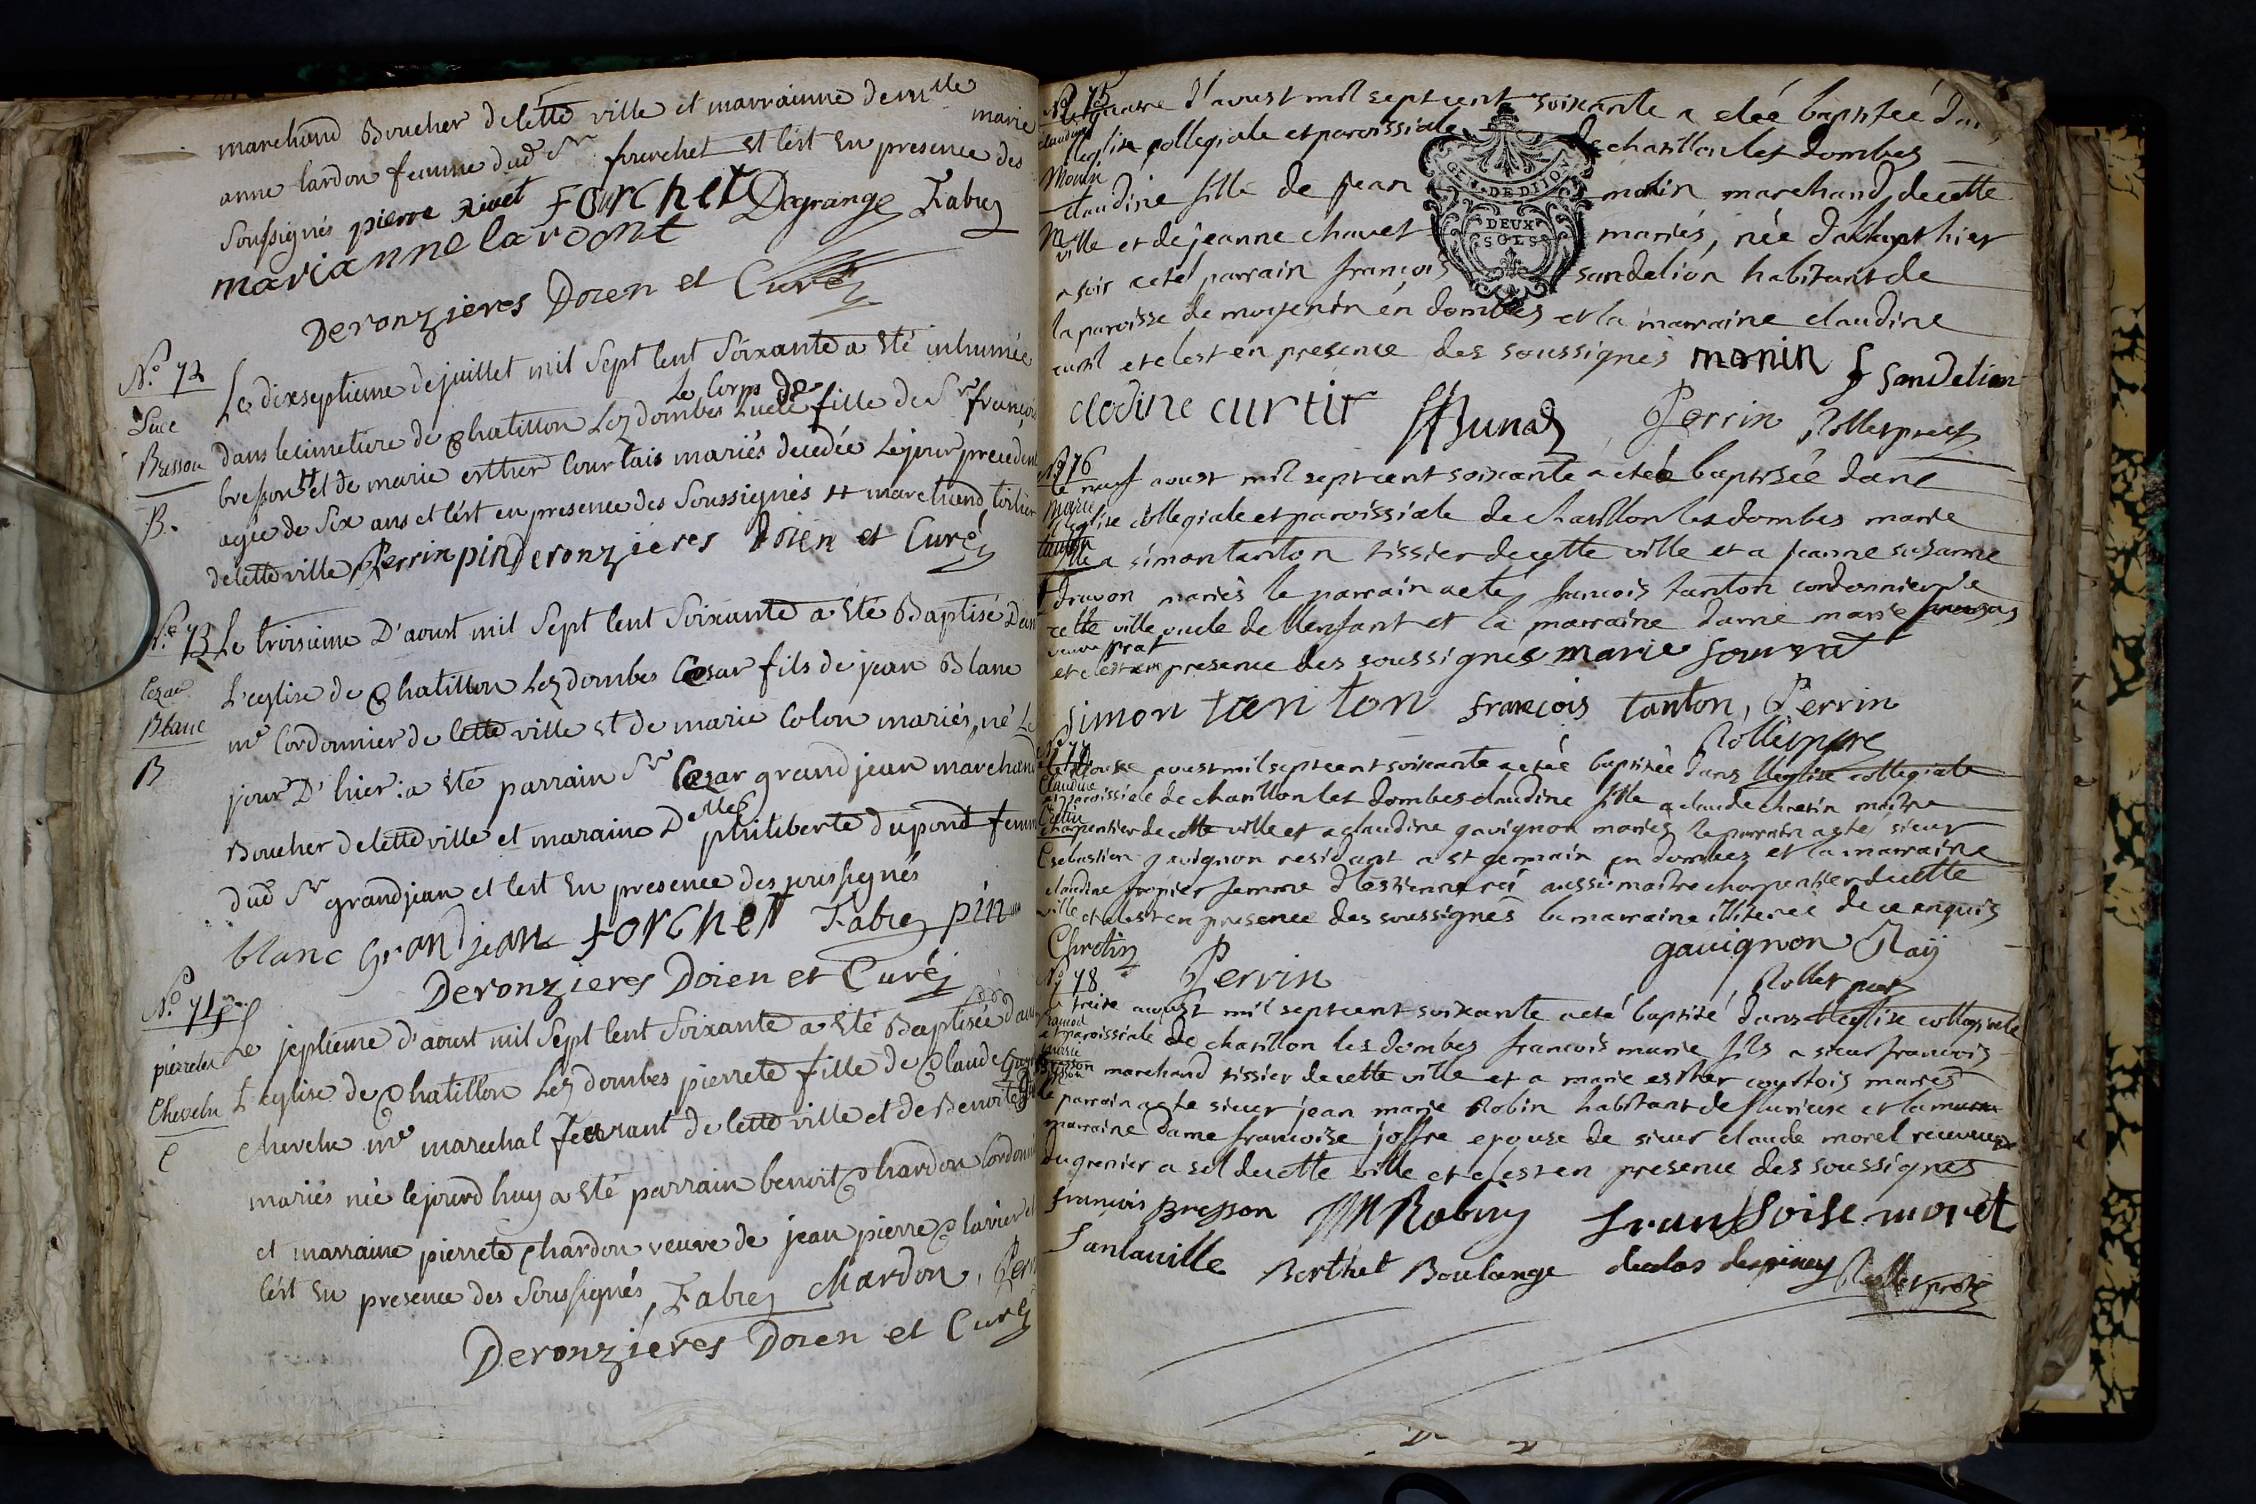 marchand Boucher de cette ville et marrainne demlle marie
anne lardon femme dud Sr fourchet et c'est En presence des
soussignés pierre rivet forchet Dagrange Fabre
marianne laroont
Deronzieres Doien et Curé
No. 72
Luce
Bresson
B.
Le dixseptieme de juillet mil Sept Cent Soixante a Eté inhumée
dans le cimetiere de Chatillon Lez dombes Le Corps de Luce fille de Sr françois
bresson # et de marie esther Courtais mariés decedée Le jour precedent
agée de Six ans et c'est en presence des Soussignés # marchand toilier
de cette ville Perrin pin Deronzieres Doien et Curé
No. 73
Cezar
Blanc
B
Le troisieme D'aoust mil Sept Cent Soixante a Eté Baptisé Dans
L'eglise de Chatillon Lez dombes Cesar fils de jean Blanc
me Cordonnier de cette ville et de marie Colon mariés, né Le
jour D'hier : a Eté parrain Sr Cezar grandjean marchand
Boucher de cette ville et maraine Delle philiberte dupond femme
dud Sr grandjean et c'est En presence des soussignés
blanc Grandjean forchet Fabre pin
Deronzieres Doien et Curé
No. 74
pierrete
Chevelu
C
Le septieme d'aoust mil Sept Cent Soixante a Eté Baptisée dans
L'eglise de Chatillon Lez dombes pierrete fille de Claude
chevelu me marechal ferrant de cette ville et de Benoite
mariés née le jourd huy a Eté parrain benoit Chardon Cordonnier
et marraine pierrete Chardon veuve de jean pierre Clavier et
c'est En presence des Soussignés, Fabre Chardon, Perrin
Deronzieres Doien et Curé
No 75
claudine
Monin
d'aoust mil sept cent soixante a eteé baptiseé dans
l'eglise collegiale et paroissiale de chatillon les dombes
claudine fille de jean monin marchand de cette
ville et de jeanne chavet mariés, née hier
a soir a eté parrain françois sandelion habitant de
la paroisse de mogenin en dombes et la marraine claudine
curtil et c'est en presence des soussignés monin f sandelion
clodine curtir Perrin Rollet
No 76
Marie
tanton
Le neuf aoust mil sept cent soixante a eteé baptisée dans
l'eglise collegiale et paroissiale de chatillon les dombes marie
fille a simon tanton tissier de cette ville et a jeanne suzanne
dravon mariés le parrain a eté françois tanton cordonnier de
cette ville oncle de l'enfant et la marraine dame marie
veuve prat
et c'est en presence des soussignés marie
simon tanton françois tanton, Perrin
Rollet
No 77
Claudine
Cretin
Le douze aoust mil sept cent soixante a eteé baptisée dans l'eglise collegiale
et paroissiale de chatillon les dombes claudine fille a claude chretin maitre
charpentier de cette ville et a claudine gavignon mariés le parrain a eté sieur
sebastien gavignon residant a st germain en dombes et la marraine
claudine femme d'estienne rei aussi maitre charpentier de cette
ville et c'est en presence des soussignés la marraine illiterée de ce enquis
Chretin Perrin gavignon Raÿ
Rollet
No 78
françois
marie
Bresson
Le treize aoust mil sept cent soixante a eté baptisé dans l'eglise collegiale
et paroissiale de chatillon les dombes françois marie fils a sieur françois
Bresson marchand tissier de cette ville et a marie esther courtois mariés
le parrain a eté sieur jean marie Robin habitant de flurieux et la
marraine dame françoise joffre epouse de sieur claude morel receveur
du grenier a sel de cette ville et c'est en presence des soussignés
françois Bresson JM Robin fransoise morel
Sanlaville Berthet Boulange Rollet
GEN. DE DIJON
DEUX
SOLS